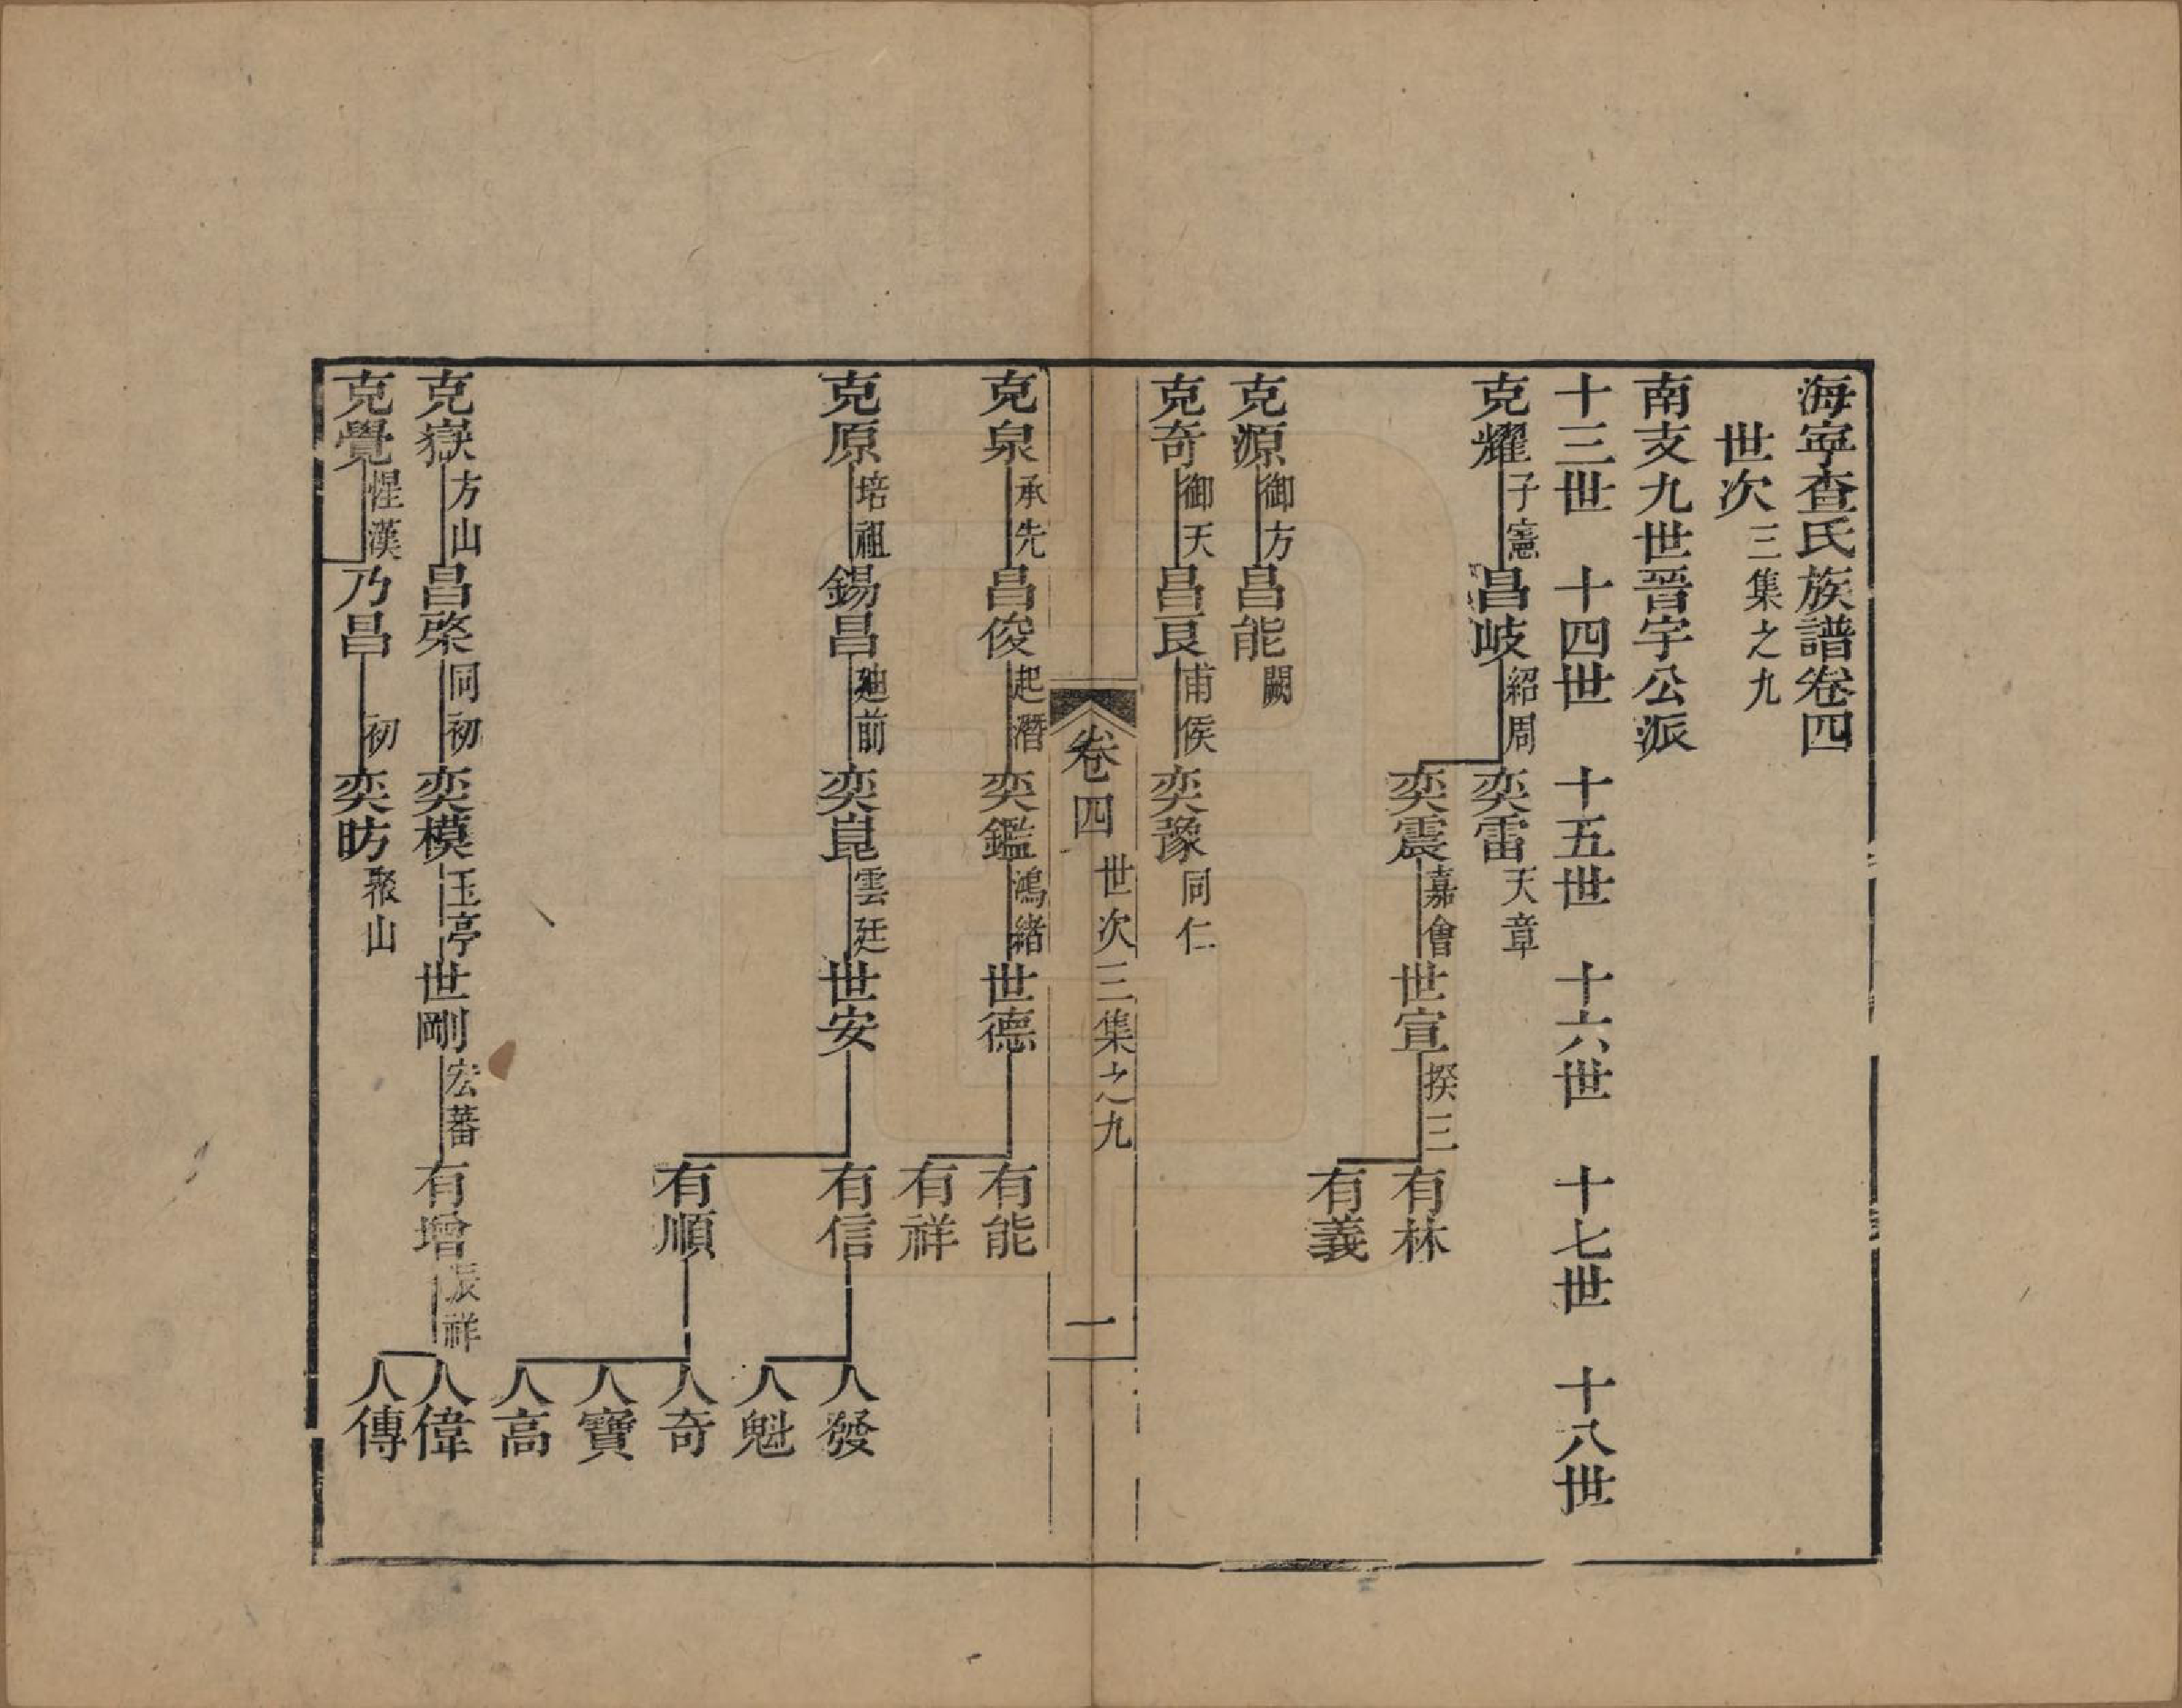 海寧查氏族譜卷四
世次三集之九
南支九世晉宇公派
十三世 十四世 十五世 十六世 十七世 十八世
克耀子憲 昌岐紹周 奕雷天章
奕震嘉會 世宣揆三 有林
有義
克源御方 昌能闕
克奇御天 昌良甫侯 奕豫同仁
卷四 世次三集之九 一
克泉承先 昌俊起潛 奕鑑鴻緒 世德 有能
有祥
克原培祖 錫昌廸前 奕崑雲廷 世安 有信 人發
人魁
有順 人奇
人寶
人高
克嶽方山 昌棨同初 奕模玉亭 世剛宏蕃 有增辰祥 人偉
人傳
克覺惺漢 乃昌 初 奕昉聚山